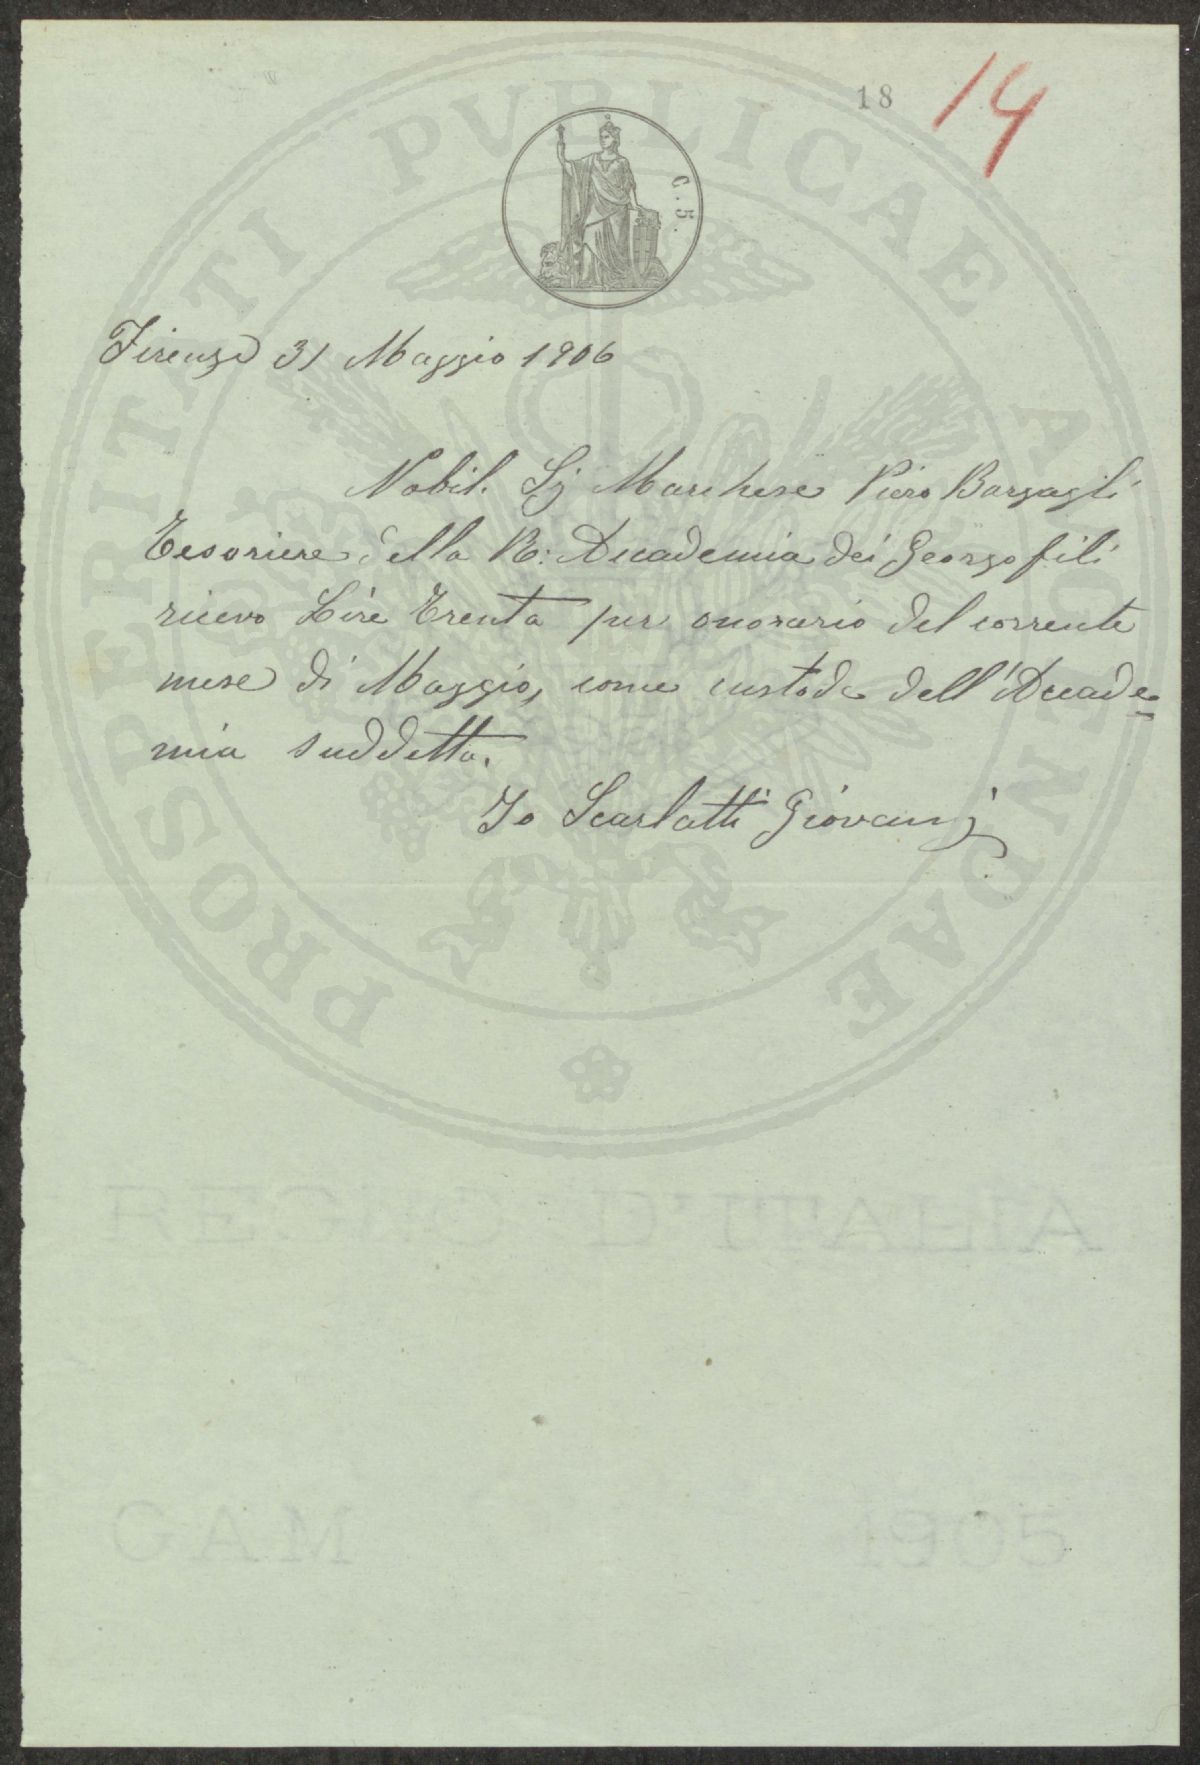 18
14
C. 5.
Firenze 31 Maggio 1906
Nobil. Sg Marchese Piero Bargagli
Tesoriere della R: Accademia dei Georgofili
ricevo Lire Trenta per onorario del corrente
mese di Maggio, come custode dell'Accade
mia suddetta.
Io Scarlatti Giovanni
PROSPERITATI PVBLICAE AVGENDAE
REGNO D'ITALIA
GAM 1905